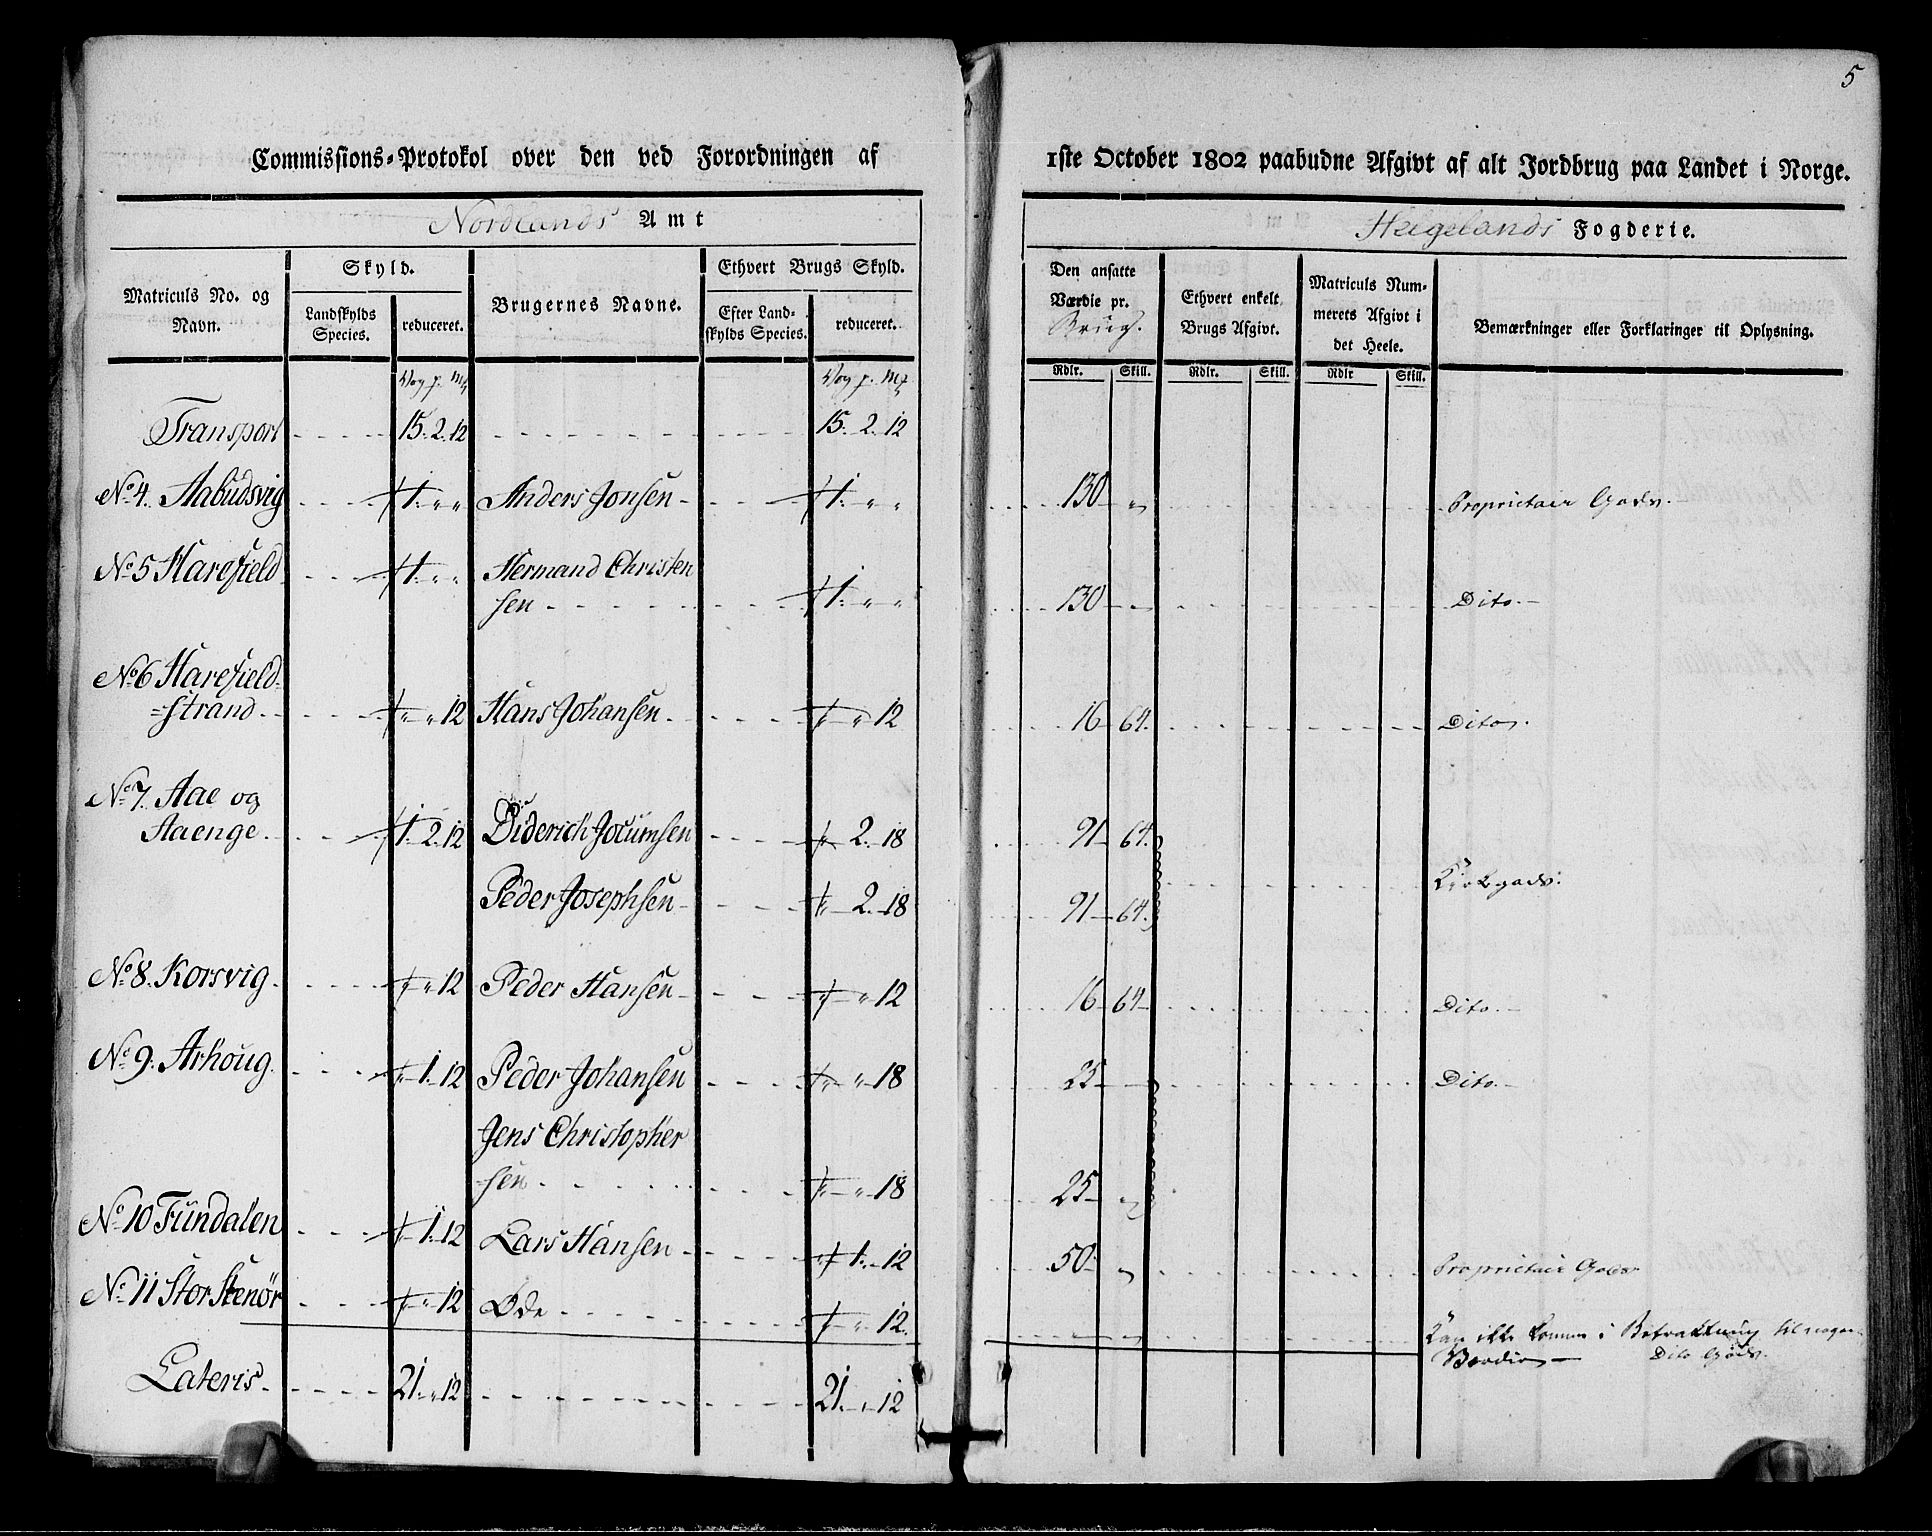 5
Commissions-Protokol over den ved Forordningen af 1ste October 1802 paabudne Afgivt af alt Jordbrug paa Landet i Norge.
Nordlands Amt Helgelands Fogderie.
Matriculs No. og Navn.
Skyld.
Landskylds Species.
reduceret.
Brugernes Navne.
Ethvert Brugs Skyld.
Efter Landskylds Species.
reduceret.
Den ansatte Værdie pr. Brug.
Ethvert enkelt Brugs Afgivt.
Matriculs Nummerets Afgivt i det Heele.
Bemærkninger eller Forklaringer til Oplysning.
Rdlr. Skill. Rdlr. Skill. Rdlr Skill.
Vog p. Mk Vog p. Mk
Transport 15. 2. 12 15. 2. 12
No 4. Aabudsvig 1. " " Anders Jonsen 1. " " 130 " Proprietair Gods.
No 5 Harefield 1. " " Hermand Christen
sen 1. " " 130 Dito.
No 6 Harefield=
=strand " " 12 Hans Johansen " " 12 16 64. Dito.
No 7. Aae og
Aaenge 1. 2. 12 Diderich Jocumsen " 2. 18 91 64.
Kirkegods.
Peder Josephsen " 2. 18 91 64.
No 8. Korsvig " " 12 Peder Hansen " " 12 16 64 Dito.
No 9. Arhoug " 1. 12 Peder Johansen " " 18 25 Dito.
Jens Christopher
sen " " 18 25 "
No 10 Fundalen " 1. 12 Lars Hansen " 1. 12 50 " Proprietair Gods
No 11 Stor Stenør " " 12 Øde " " 12. Kan ikke komme i Betraktning til nogen
Værdie Dito Gods.
Lateris 21. " 12 21. " 12